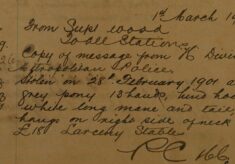 1st March 19
From Supt Wood
To all Stations
Copy of message from K Divi
etropolitan Police
Stolen on 28th February 1901 a
grey pony 13 hands, hind hoo
white long mane and tail
hangs on right side of neck
£18 Larceny Stable
PC